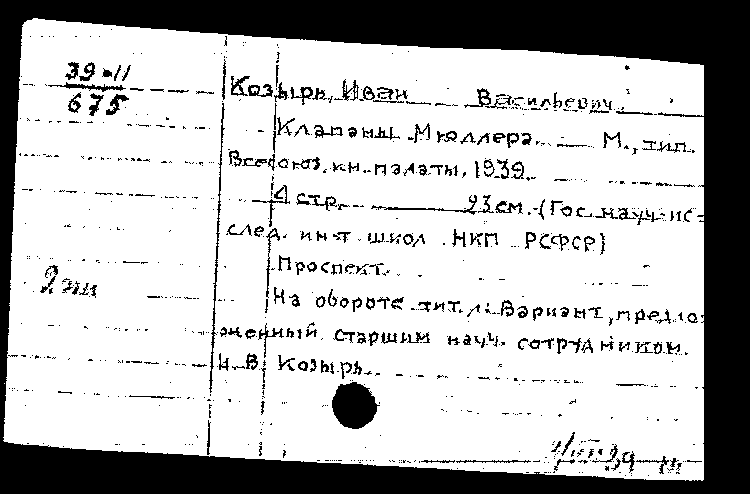 39-11
675
Козырь, Иван Васильевич.
Клапаны Мюллера. — М., тип.
Всесоюз. кн. палаты, 1939.
4 стр. 23 см. (Гос. науч.-ис-
след. ин-т школ НКП РСФСР)
Проспект.
На обороте тит. л.: Вариант, предло-
женный старшим науч. сотрудником
И. В. Козырь.
2 экз